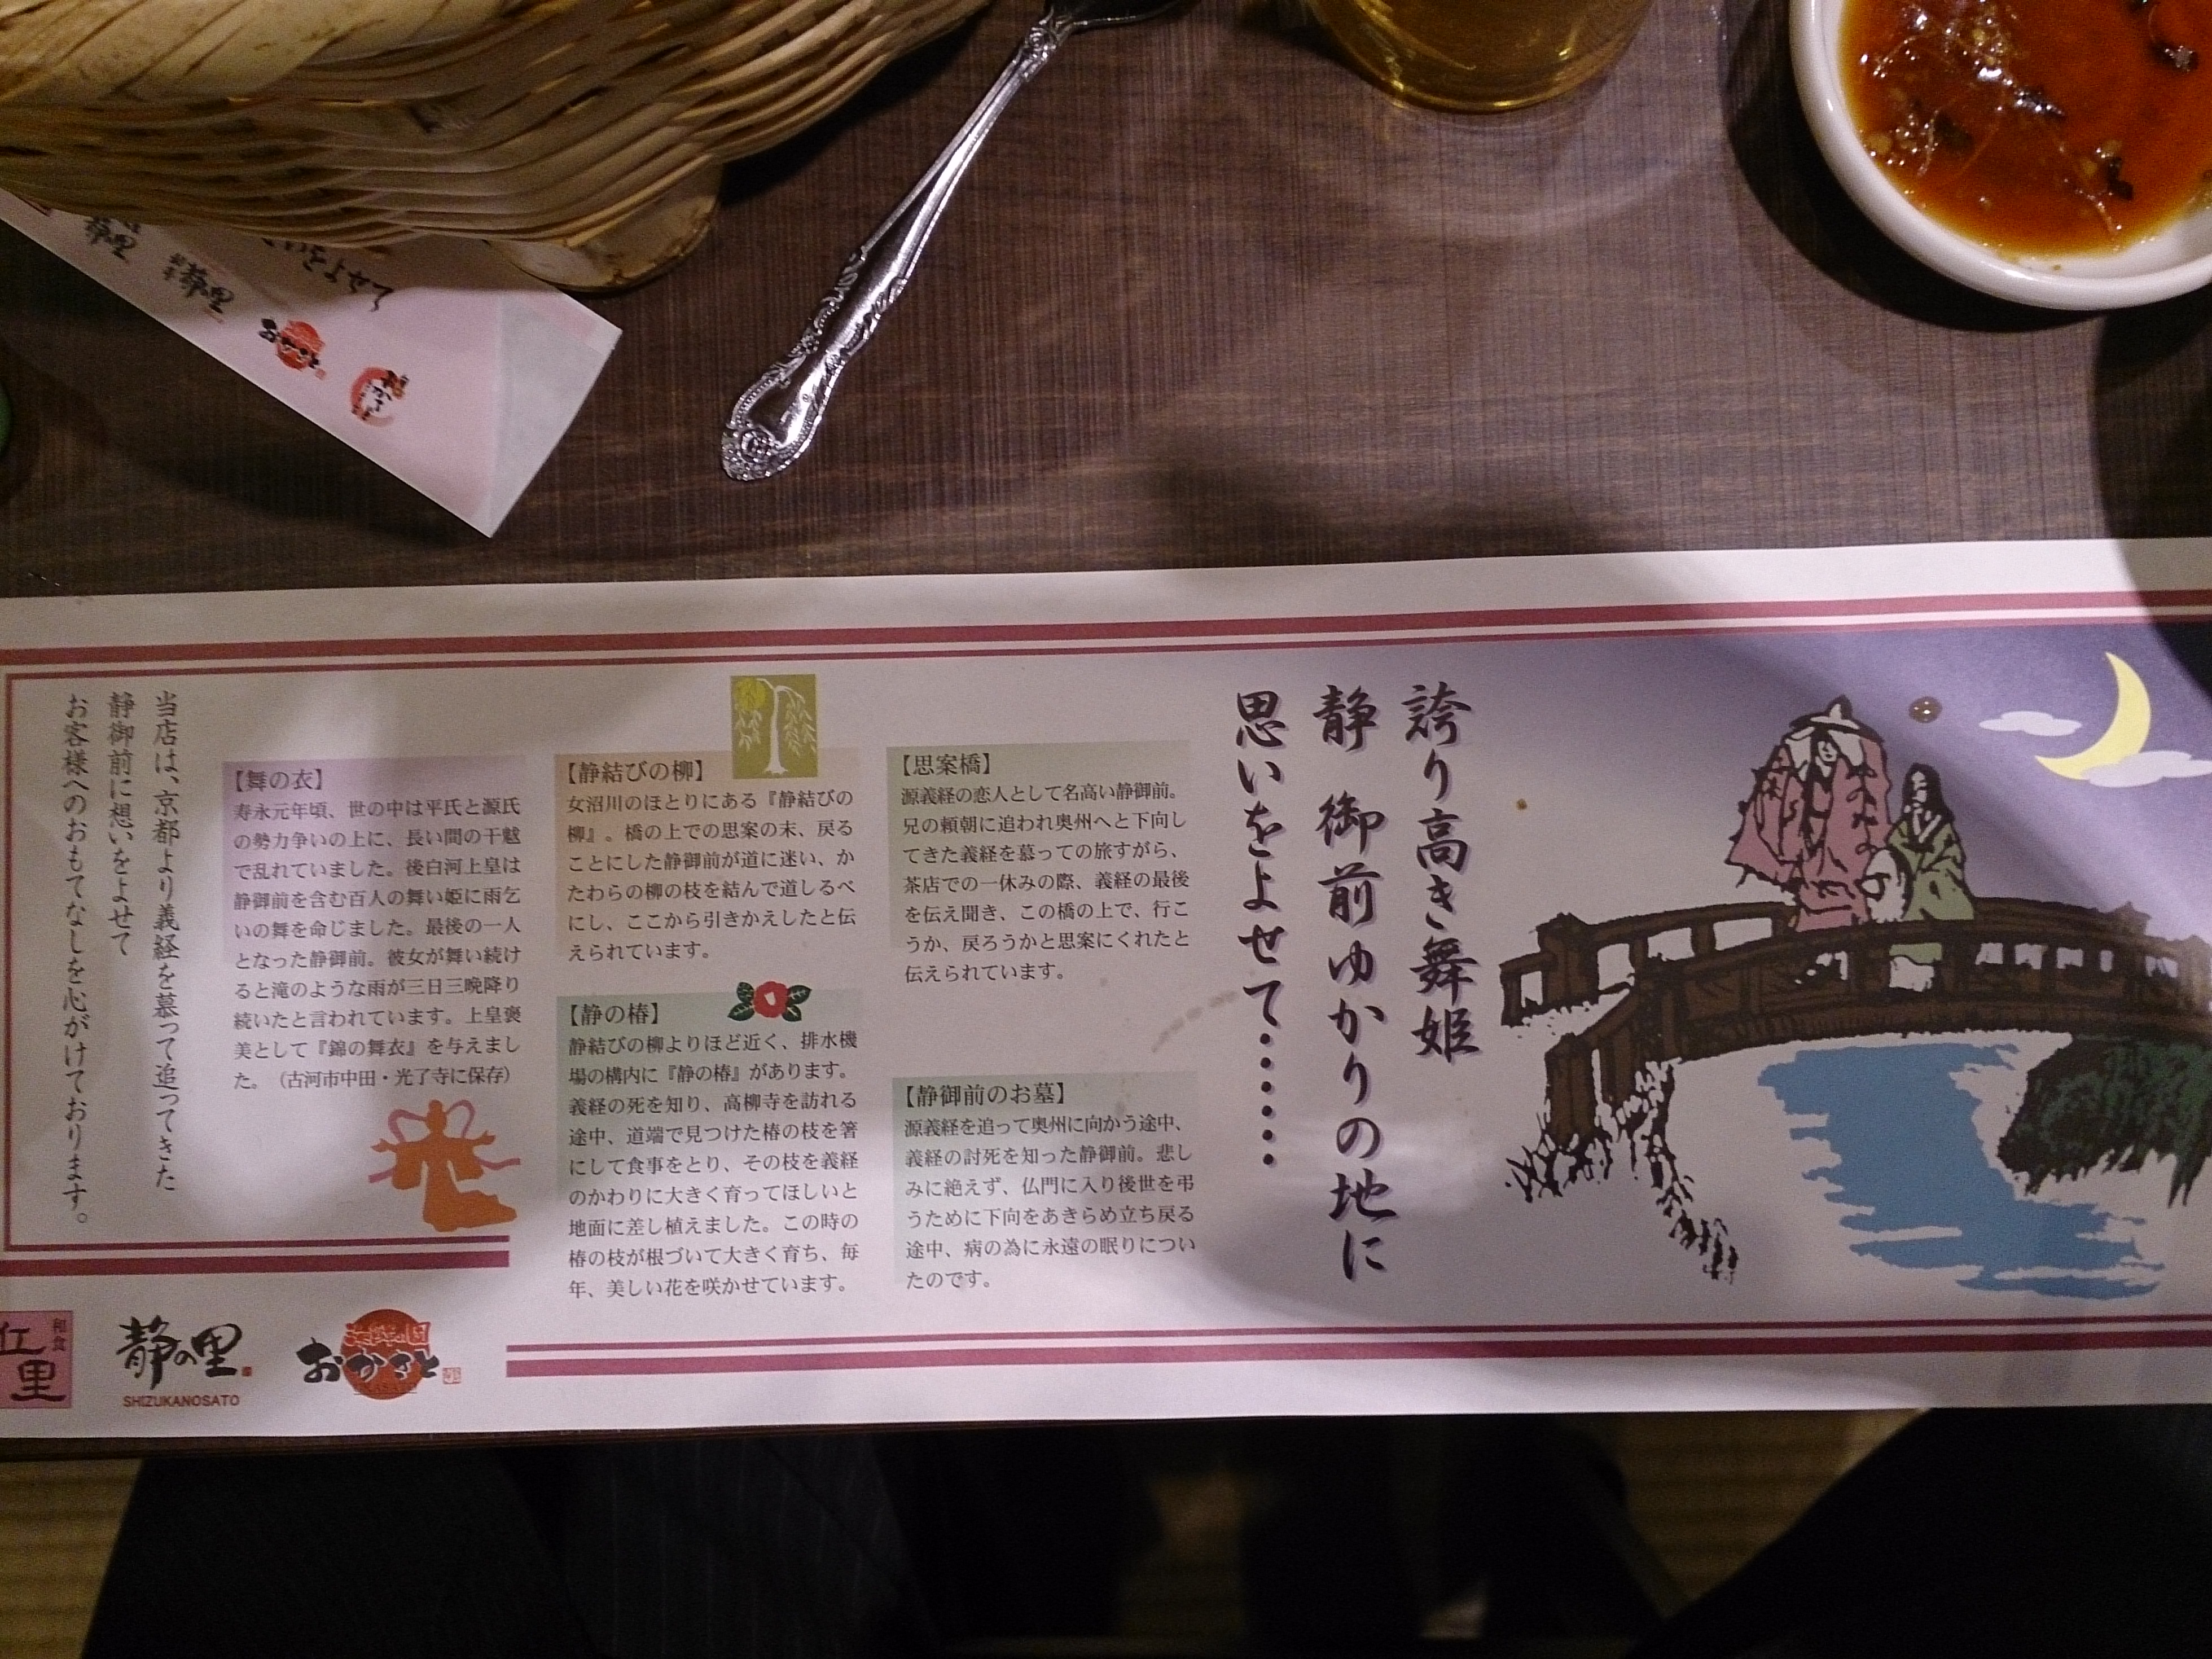 誇り高き舞姫
静 御前ゆかりの地に
思いをよせて・・・・・・
【思案橋】
源義経の恋人として名高い静御前。
兄の頼朝に追われ奥州へと下向し
てきた義経を慕っての旅すがら、
茶店での一休みの際、義経の最後
を伝え聞き、この橋の上で、行こ
うか、戻ろうかと思案にくれたと
伝えられています。
【静御前のお墓】
源義経を追って奥州に向かう途中、
義経の討死を知った静御前。悲し
みに絶えず、仏門に入り後世を弔
うために下向をあきらめ立ち戻る
途中、病の為に永遠の眠りについ
たのです。
【静結びの柳】
女沼川のほとりにある『静結びの
柳』。橋の上での思案の末、戻る
ことにした静御前が道に迷い、か
たわらの柳の枝を結んで道しるべ
にし、ここから引きかえしたと伝
えられています。
【静の椿】
静結びの柳よりほど近く、排水機
場の構内に『静の椿』があります。
義経の死を知り、高柳寺を訪れる
途中、道端で見つけた椿の枝を箸
にして食事をとり、その枝を義経
のかわりに大きく育ってほしいと
地面に差し植えました。この時の
椿の枝が根づいて大きく育ち、毎
年、美しい花を咲かせています。
【舞の衣】
寿永元年頃、世の中は平氏と源氏
の勢力争いの上に、長い間の干魃
で乱れていました。後白河上皇は
静御前を含む百人の舞い姫に雨乞
いの舞を命じました。最後の一人
となった静御前。彼女が舞い続け
ると滝のような雨が三日三晩降り
続いたと言われています。上皇褒
美として『錦の舞衣』を与えまし
た。（古河市中田・光了寺に保存）
当店は、京都より義経を慕って追ってきた
静御前に想いをよせて
お客様へのおもてなしを心がけております。
和食
仁里
静の里
SHIZUKANOSATO
おかさと
をよせて
静の里
おかさと